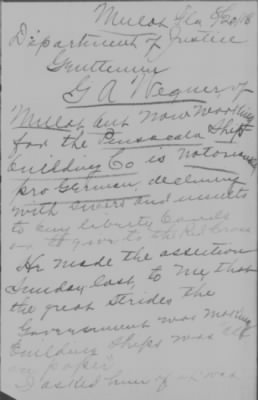 Mulat Fla 8/20/18
Department of Justice
Gentlemen
G A Wegner, of
Mulat but now working
for the Pensacola Ship
building Co is notoriously
pro German, declining
with sneers and insults
to buy liberty bonds
or to give to the Red Cross
He made the assertion
Sunday last, to me that
the great strides the
Government was making
building ships was "all
on paper"
I asked him if he was